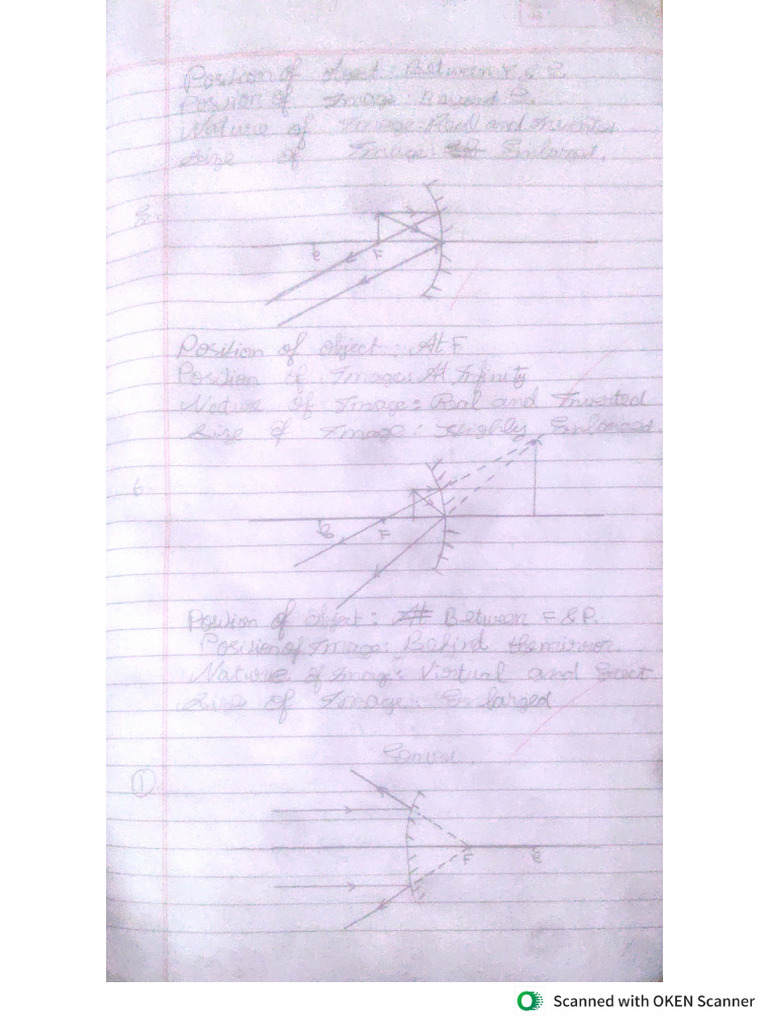 Position of object: Between F & C
Position of Image: Beyond C.
Nature of Image: Real and Inverted
Size of Image: Enlarged.
5.
C F
Position of object: At F
Position of Image: At Infinity
Nature of Image: Real and Inverted
Size of Image: Highly Enlarged.
6.
C F
Position of object: Between F & P.
Position of Image: Behind the mirror
Nature of Image: Virtual and Erect
Size of Image: Enlarged
Convex.
1
F C
Scanned with OKEN Scanner